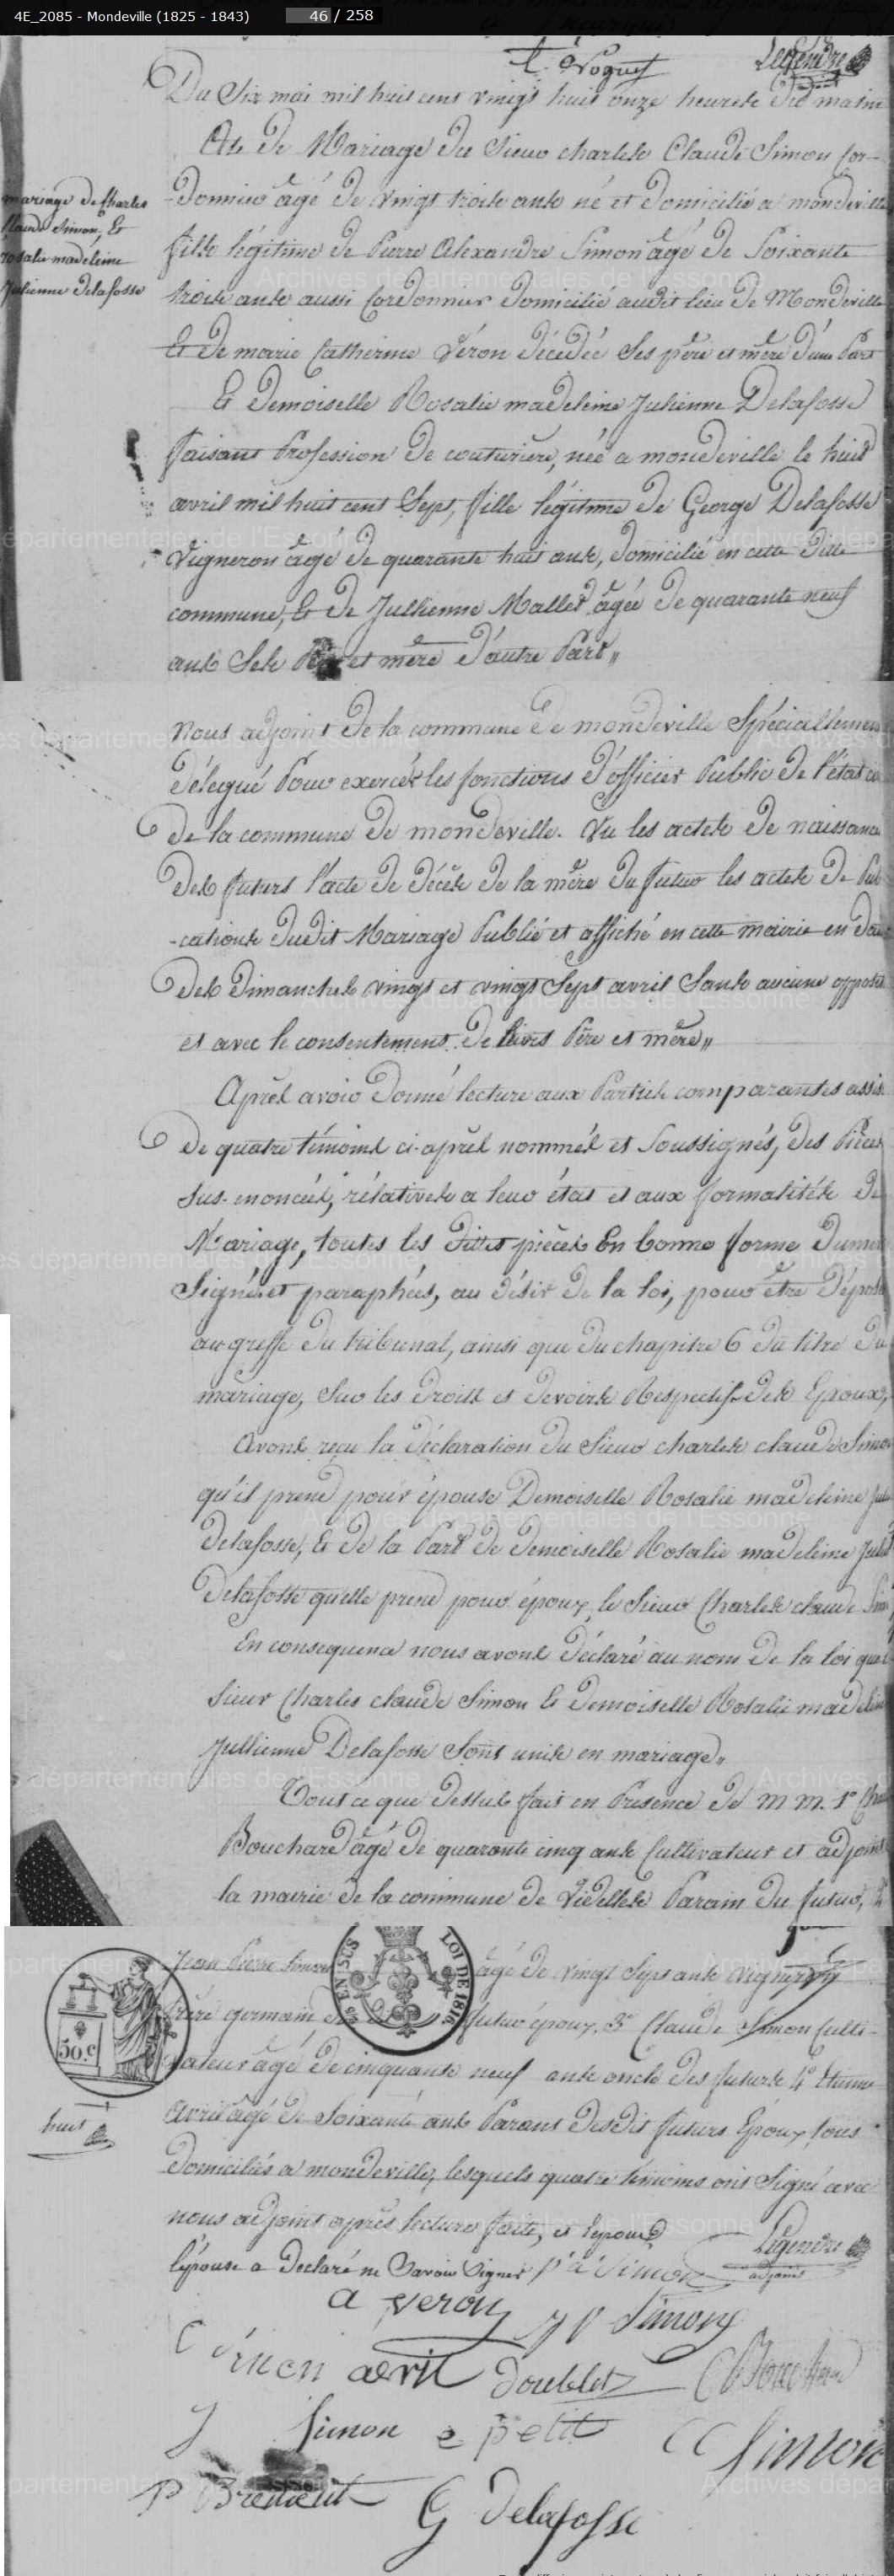 4E_2085 - Mondeville (1825 - 1843) 46 / 258
Legendre
adjoint
Du Six mai mil huit cent vingt huit onze heurese du matin
Acte de Mariage du Sieur charles Claude Simon Cor-
-donnier âgé de vingt trois ans né et domicilié a mondeville
fils légitime de Pierre Alexandre Simon âgé de Soixante
trois ans aussi Cordonnier domicilié audit lieu de Mondeville
Et de marie Catherine Véron décédée Ses père et mère d'une Part
mariage de Charles
Claude Simon, Et
rosalie madeleine
Julienne delafosse
Et demoiselle Rosalie madeleine Julienne Delafosse
faisant Profession de couturière, née a mondeville le huit
avril mil huit cent Sept, fille légitime de George Delafosse
Vigneron âgé de quarante huit ans, domicilié en cette ditte
commune, Et de Jullienne Mallet âgée de quarante neuf
ans Ses Père et mère d'autre Part"
Nous adjoint de la commune de mondeville Spécialement
délegué Pour exercer les fonctions d'officier Public de l'état ci
de la commune de mondeville. Vu les actes de naissance
des futurs l'acte de décès de la mère du futur les actes de Pu
-cations dudit Mariage Publié et affiché en cette mairie en date
des dimanches vingt et vingt Sept avril Sans aucune opposit
et avec le consentement de leurs Père et mère"
Après avoir donné lecture aux Parties comparantes assis
de quatre témoins ci-après nommés et Soussignés, des Pièces
Sus-enoncées, rélatives a leur état et aux formalités de
Mariage, toutes les dittes pièces En bonne forme dument
Signées et paraphées, au désir de la loi, pour être déposé
au greffe du tribunal, ainsi que du chapitre 6 du titre du
mariage, Sur les droits et devoirs Respectifs des Epoux,
Avons reçu la déclaration du Sieur charles claude Simon
qu'il prend pour épouse Demoiselle Rosalie madeleine Ju
Delafosse, Et de la Part de demoiselle Rosalie madeleine Juli
Delafosse qu'elle prend pour époux, le Sieur Charles claude Sim
En consequence nous avons déclaré au nom de la loi que l
Sieur Charles claude Simon Et demoiselle Rosalie madelein
Jullienne Delafosse Sont unis en mariage"
Tout ce que dessus fait en Présence de M M. 1° Cha
Bouchard âgé de quarante cinq ans Cultivateur et adjoint
la mairie de la commune de Videlles Parain du futur, 2°
Jean Pierre Simon âgé de vingt Sept ans vigneron
frère germain du futur époux, 3° Claude Simon Culti-
vateur âgé de cinquante neuf ans oncle des futurs 4° Etienne
Avril âgé de Soixante ans Parans desdit futurs Epoux, tous
domiciliés a mondeville, lesquels quatre témoins ont Signé avec
nous adjoint après lecture faite, et l'epoux
l'épouse a déclaré ne Savoir Signer
EN SUS
LOI DE 1816
50.c
huit
P A Simon
Legendre
adjoint
a veron
J P Simon
avril
doublet
C Bouchard
J Simon
e petit
C C Simon
G delafosse
Archives départementales de l'Essonne